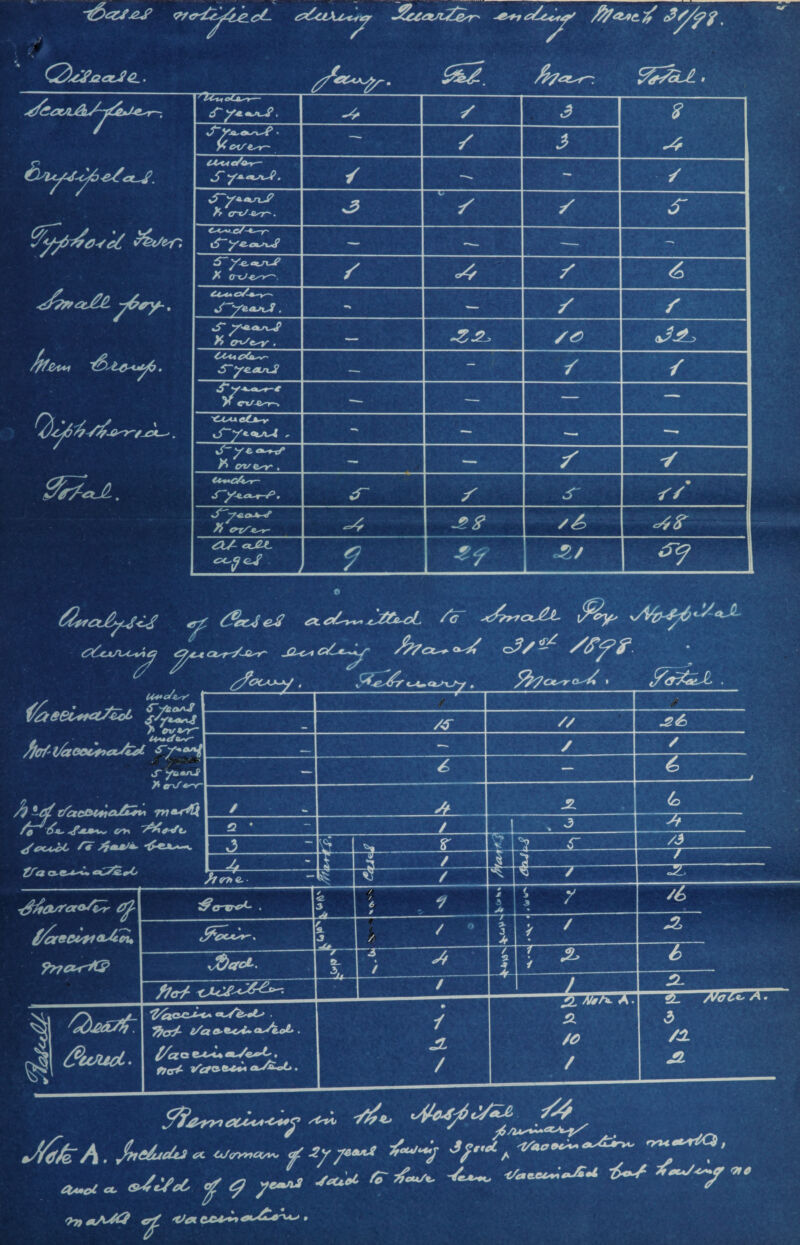 Cases notified during Quarter ending March 31/98.
Disease. Jany. Feb. Mar. Total.
Scarlet fever. Under 5 years. 4 1 3 8
5 years. & over – 1 3 4
Erysipelas. under 5 years. 1 – – 1
5 years & over. 3 1 1 5
Typhoid Fever. under 5 years – – – –
5 years & over. 1 4 1 6
Small pox. under 5 years. – – 1 1
5 years & over. – 22 10 32
Mem Croup. under 5 years – – 1 1
5 years & over. – – – –
Diphtheria. under 5 years. – – – –
5 years & over. – – 1 1
Total. under 5 years. 5 1 5 11
5 years & over 4 28 16 48
At all ages 9 29 21 59
Analysis of Cases admitted to Small Pox Hospital
during quarter ending March 31st 1898.
Jany. February. March. Total.
Vaccinated under 5 years
5 years & over – 15 11 26
Not Vaccinated under 5 years – – 1 1
5 years & over – 6 – 6
No of vaccination marks 1 – 4 2 6
to be seen on those 2 – 1 3 4
said to have been 3 – 8 5 13
Vaccinated 4 – 1 1
None. – 1 1 2
Marks. Cases Marks Cases
Character of Good. 9 7 16
Vaccination Fair. 1 1 2
marks Bad. 4 2 6
Not visible. 1 1 2
Result Death. Vaccinated. 2 Note A. 2 Note A.
Not vaccinated. 1 2 3
Cured. Vaccinated. 2 10 12
Not vaccinated. 1 1 2
Remaining in the Hospital 14
Note A. Includes a woman of 27 years having 3 good primary vaccination marks,
and a child of 9 years said to have been vaccinated but having no
marks of vaccination.